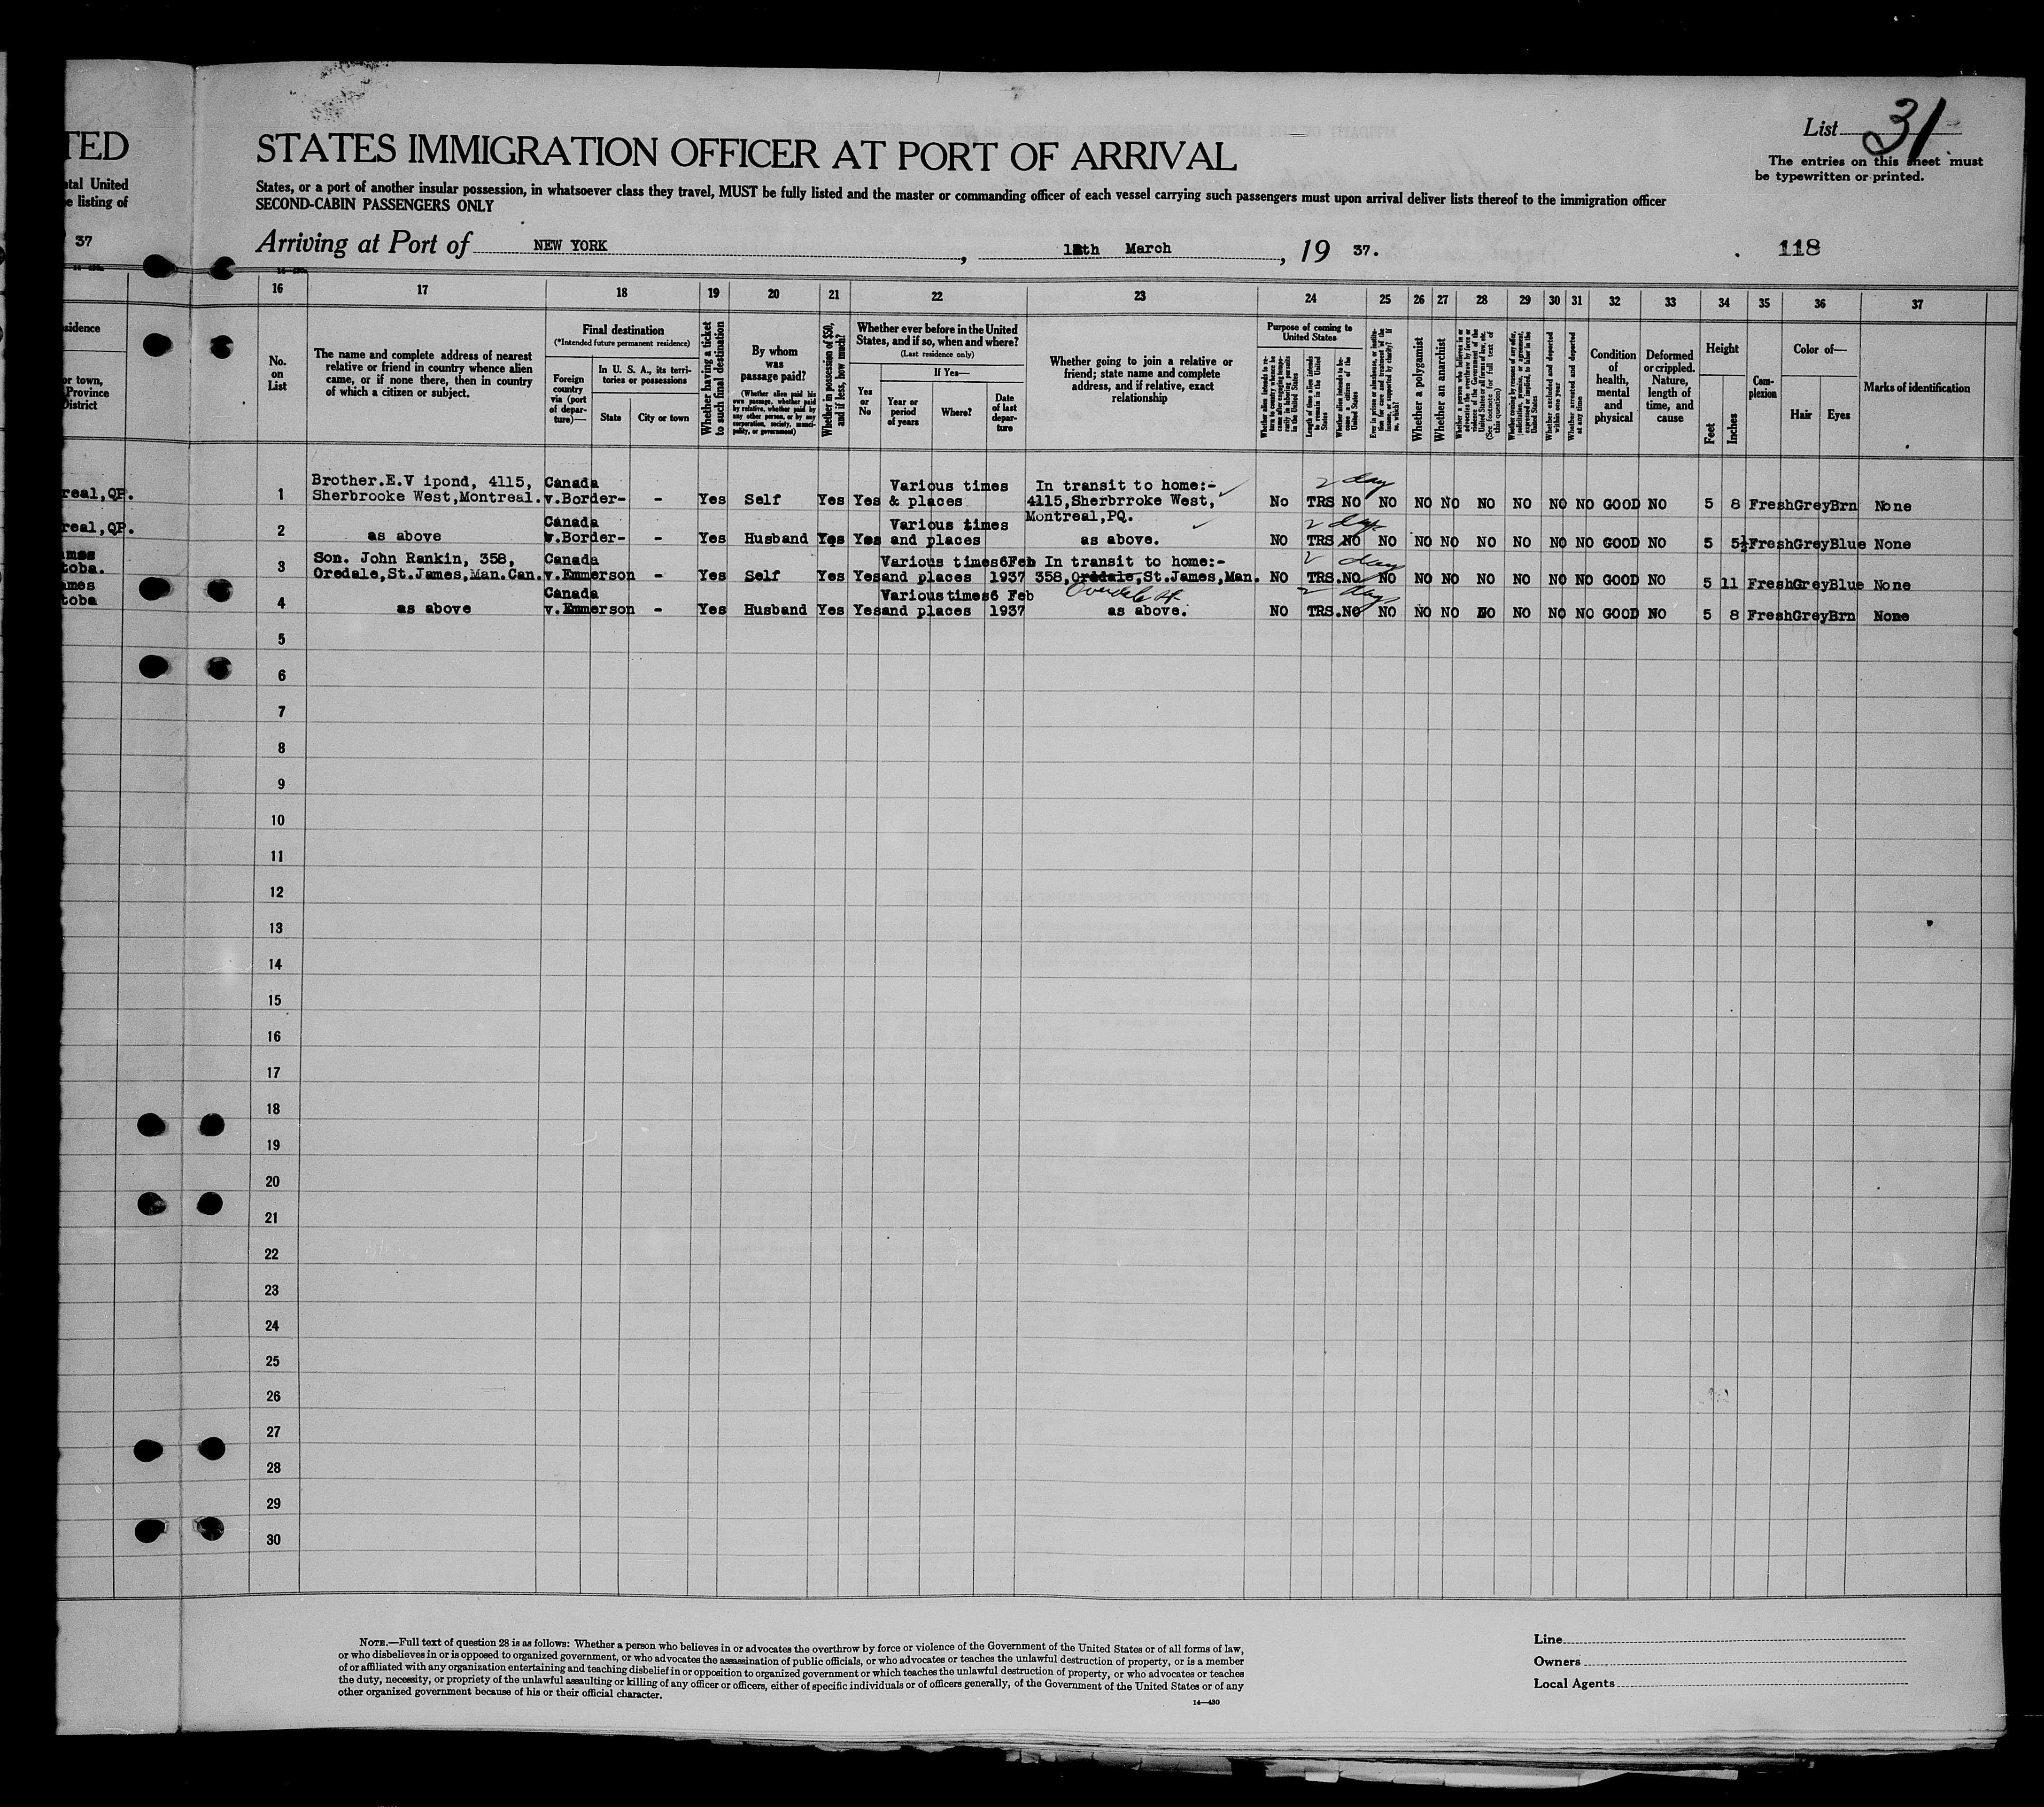 TED
STATES IMMIGRATION OFFICER AT PORT OF ARRIVAL
List 31
The entries on this sheet must
be typewritten or printed.
ntal United
e listing of
States, or a port of another insular possession, in whatsoever class they travel, MUST be fully listed and the master or commanding officer of each vessel carrying such passengers must upon arrival deliver lists thereof to the immigration officer
SECOND-CABIN PASSENGERS ONLY
37
Arriving at Port of NEW YORK, 12th March, 19 37.
118
16 17 18 19 20 21 22 23 24 25 26 27 28 29 30 31 32 33 34 35 36 37
sidence
or town,
Province
District
No.
on
List
The name and complete address of nearest
relative or friend in country whence alien
came, or if none there, then in country
of which a citizen or subject.
Final destination
(*Intended future permanent residence)
Foreign
country
via (port
of depar-
ture)—
In U. S. A., its terri-
tories or possessions
State
City or town
Whether having a ticket
to such final destination
By whom
was
passage paid?
(Whether alien paid his
own passage, whether paid
by relative, whether paid by
any other person, or by any
corporation, society, munici-
pality, or government)
Whether in possession of $50,
and if less, how much?
Whether ever before in the United
States, and if so, when and where?
(Last residence only)
Yes
or
No
If Yes—
Year or
period
of years
Where?
Date
of last
depar-
ture
Whether going to join a relative or
friend; state name and complete
address, and if relative, exact
relationship
Purpose of coming to
United States
Whether alien intends to re-
turn to country whence he
came after engaging tempo-
rarily in laboring pursuits
in the United States
Length of time alien intends
to remain in the United
States
Whether alien intends to be-
come a citizen of the
United States
Ever in prison or almshouse, or institu-
tion for care and treatment of the
insane, or supported by charity? If
so, which?
Whether a polygamist
Whether an anarchist
Whether a person who believes in or
advocates the overthrow by force or
violence of the Government of the
United States or all forms of law, etc.
(See footnote for full text of
this question)
Whether coming by reason of any offer,
solicitation, promise, or agreement,
expressed or implied, to labor in the
United States
Whether excluded and deported
within one year
Whether arrested and deported
at any time
Condition
of
health,
mental
and
physical
Deformed
or crippled.
Nature,
length of
time, and
cause
Height
Feet
Inches
Com-
plexion
Color of—
Hair
Eyes
Marks of identification
real,QP. 1 Brother.E.V ipond, 4115,
Sherbrooke West,Montreal. Canada
v.Border- - Yes Self Yes Yes Various times
& places In transit to home:-
4115,Sherbrroke West,
Montreal,PQ. No 2 day TRS NO NO NO NO NO NO NO NO GOOD NO 5 8 Fresh Grey Brn None
real,QP. 2 as above Canada
v.Border- - Yes Husband Yes Yes Various times
and places as above. NO 2 days TRS NO NO NO NO NO NO NO NO GOOD NO 5 5½ Fresh Grey Blue None
ames
toba. 3 Son. John Rankin, 358,
Oredale,St.James,Man.Can. Canada
v.Emmerson - Yes Self Yes Yes Various times
and places 6Feb
1937 In transit to home:-
358,Oredale,St.James,Man. NO 2 days TRS.NO NO NO NO NO NO NO NO GOOD NO 5 11 Fresh Grey Blue None
Overdale St
ames
toba 4 as above Canada
v.Emmerson - Yes Husband Yes Yes Various times
and places 6 Feb
1937 as above. NO 2 days TRS.NO NO NO NO NO NO NO NO GOOD NO 5 8 Fresh Grey Brn None
5
6
7
8
9
10
11
12
13
14
15
16
17
18
19
20
21
22
23
24
25
26
27
28
29
30
NOTE.—Full text of question 28 is as follows: Whether a person who believes in or advocates the overthrow by force or violence of the Government of the United States or of all forms of law,
or who disbelieves in or is opposed to organized government, or who advocates the assassination of public officials, or who advocates or teaches the unlawful destruction of property, or is a member
of or affiliated with any organization entertaining and teaching disbelief in or opposition to organized government or which teaches the unlawful destruction of property, or who advocates or teaches
the duty, necessity, or propriety of the unlawful assaulting or killing of any officer or officers, either of specific individuals or of officers generally, of the Government of the United States or of any
other organized government because of his or their official character.
14—430
Line
Owners
Local Agents